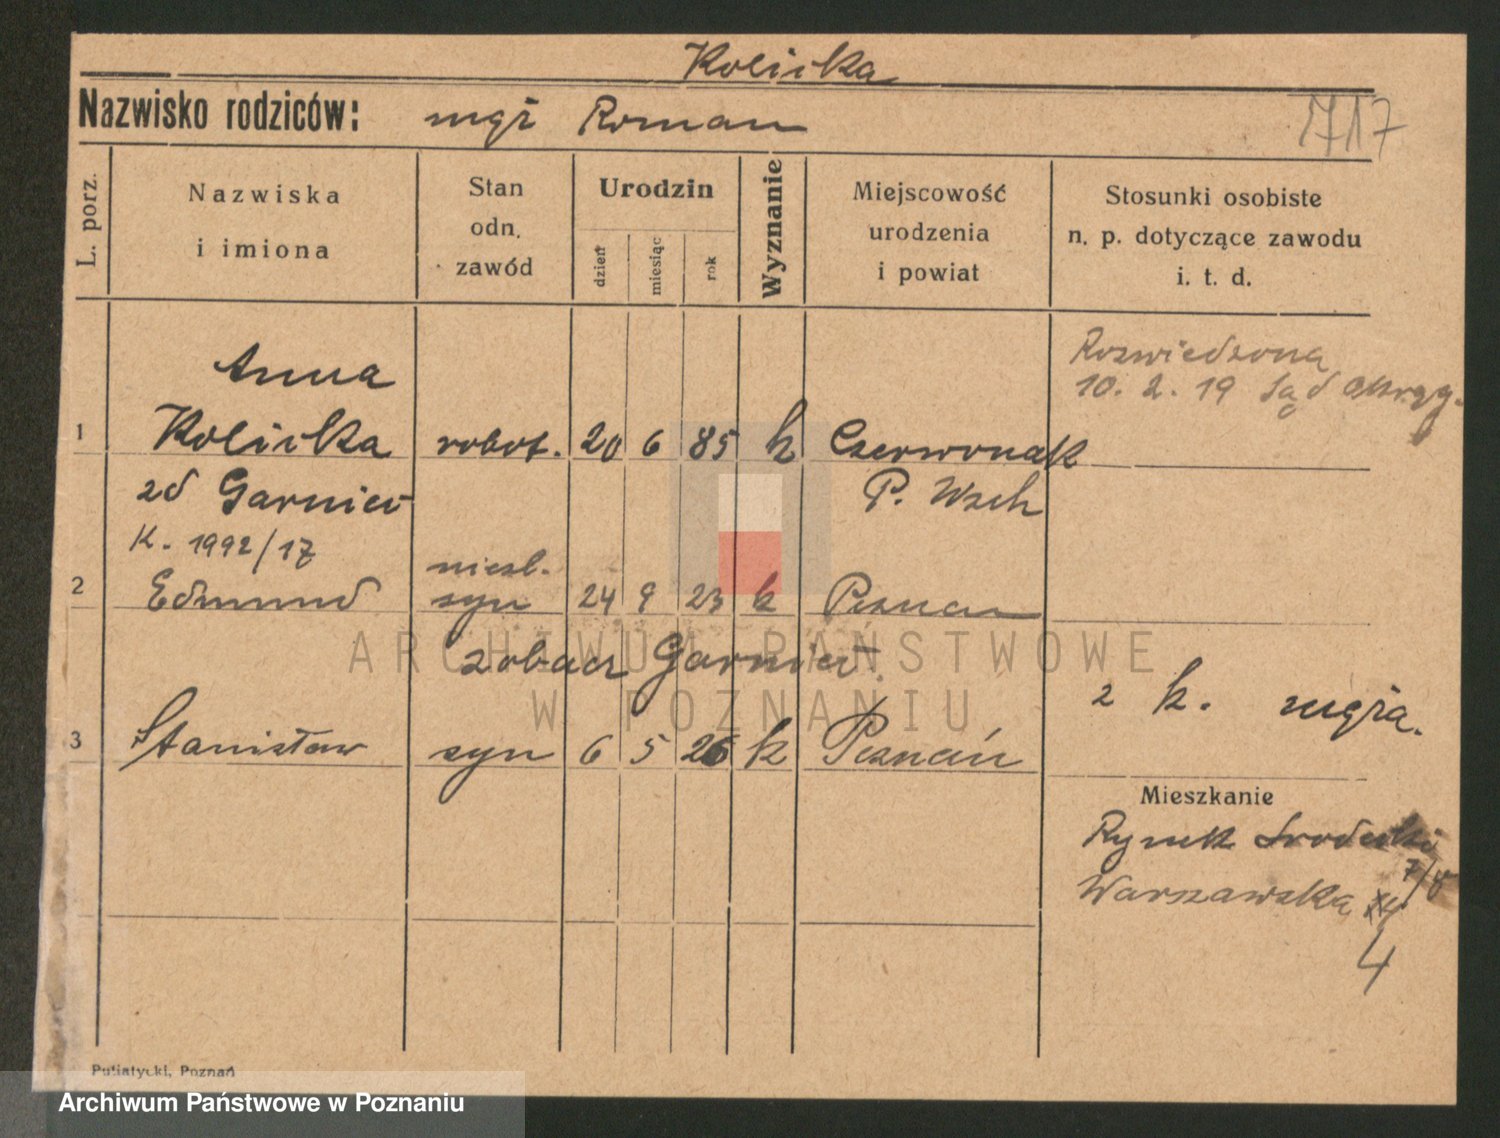 Kolicka
Nazwisko rodziców: mgż Roman
1717
L. porz.
Nazwiska
i imiona
Stan
odn.
zawód
Urodzin
dzień
miesiąc
rok
Wyznanie
Miejscowość
urodzenia
i powiat
Stosunki osobiste
n. p. dotyczące zawodu
i. t. d.
Rozwiedzona
10. 2. 19 Sąd Okręg.
Anna
1 Kolicka robot. 20 6 85 k Czerwonak
zd Garniec P. Wsch
K. 1992/17
niesl.
2 Edmund syn 24 9 23 k Poznan
zobacz Garniec.
2 k. mgża.
3 Stanisław syn 6 5 26 k Poznań
Mieszkanie
Rynek Srodecki
7/8
Warszawska
4
Putiatycki, Poznań
ARCHIWUM PAŃSTWOWE
W POZNANIU
Archiwum Państwowe w Poznaniu